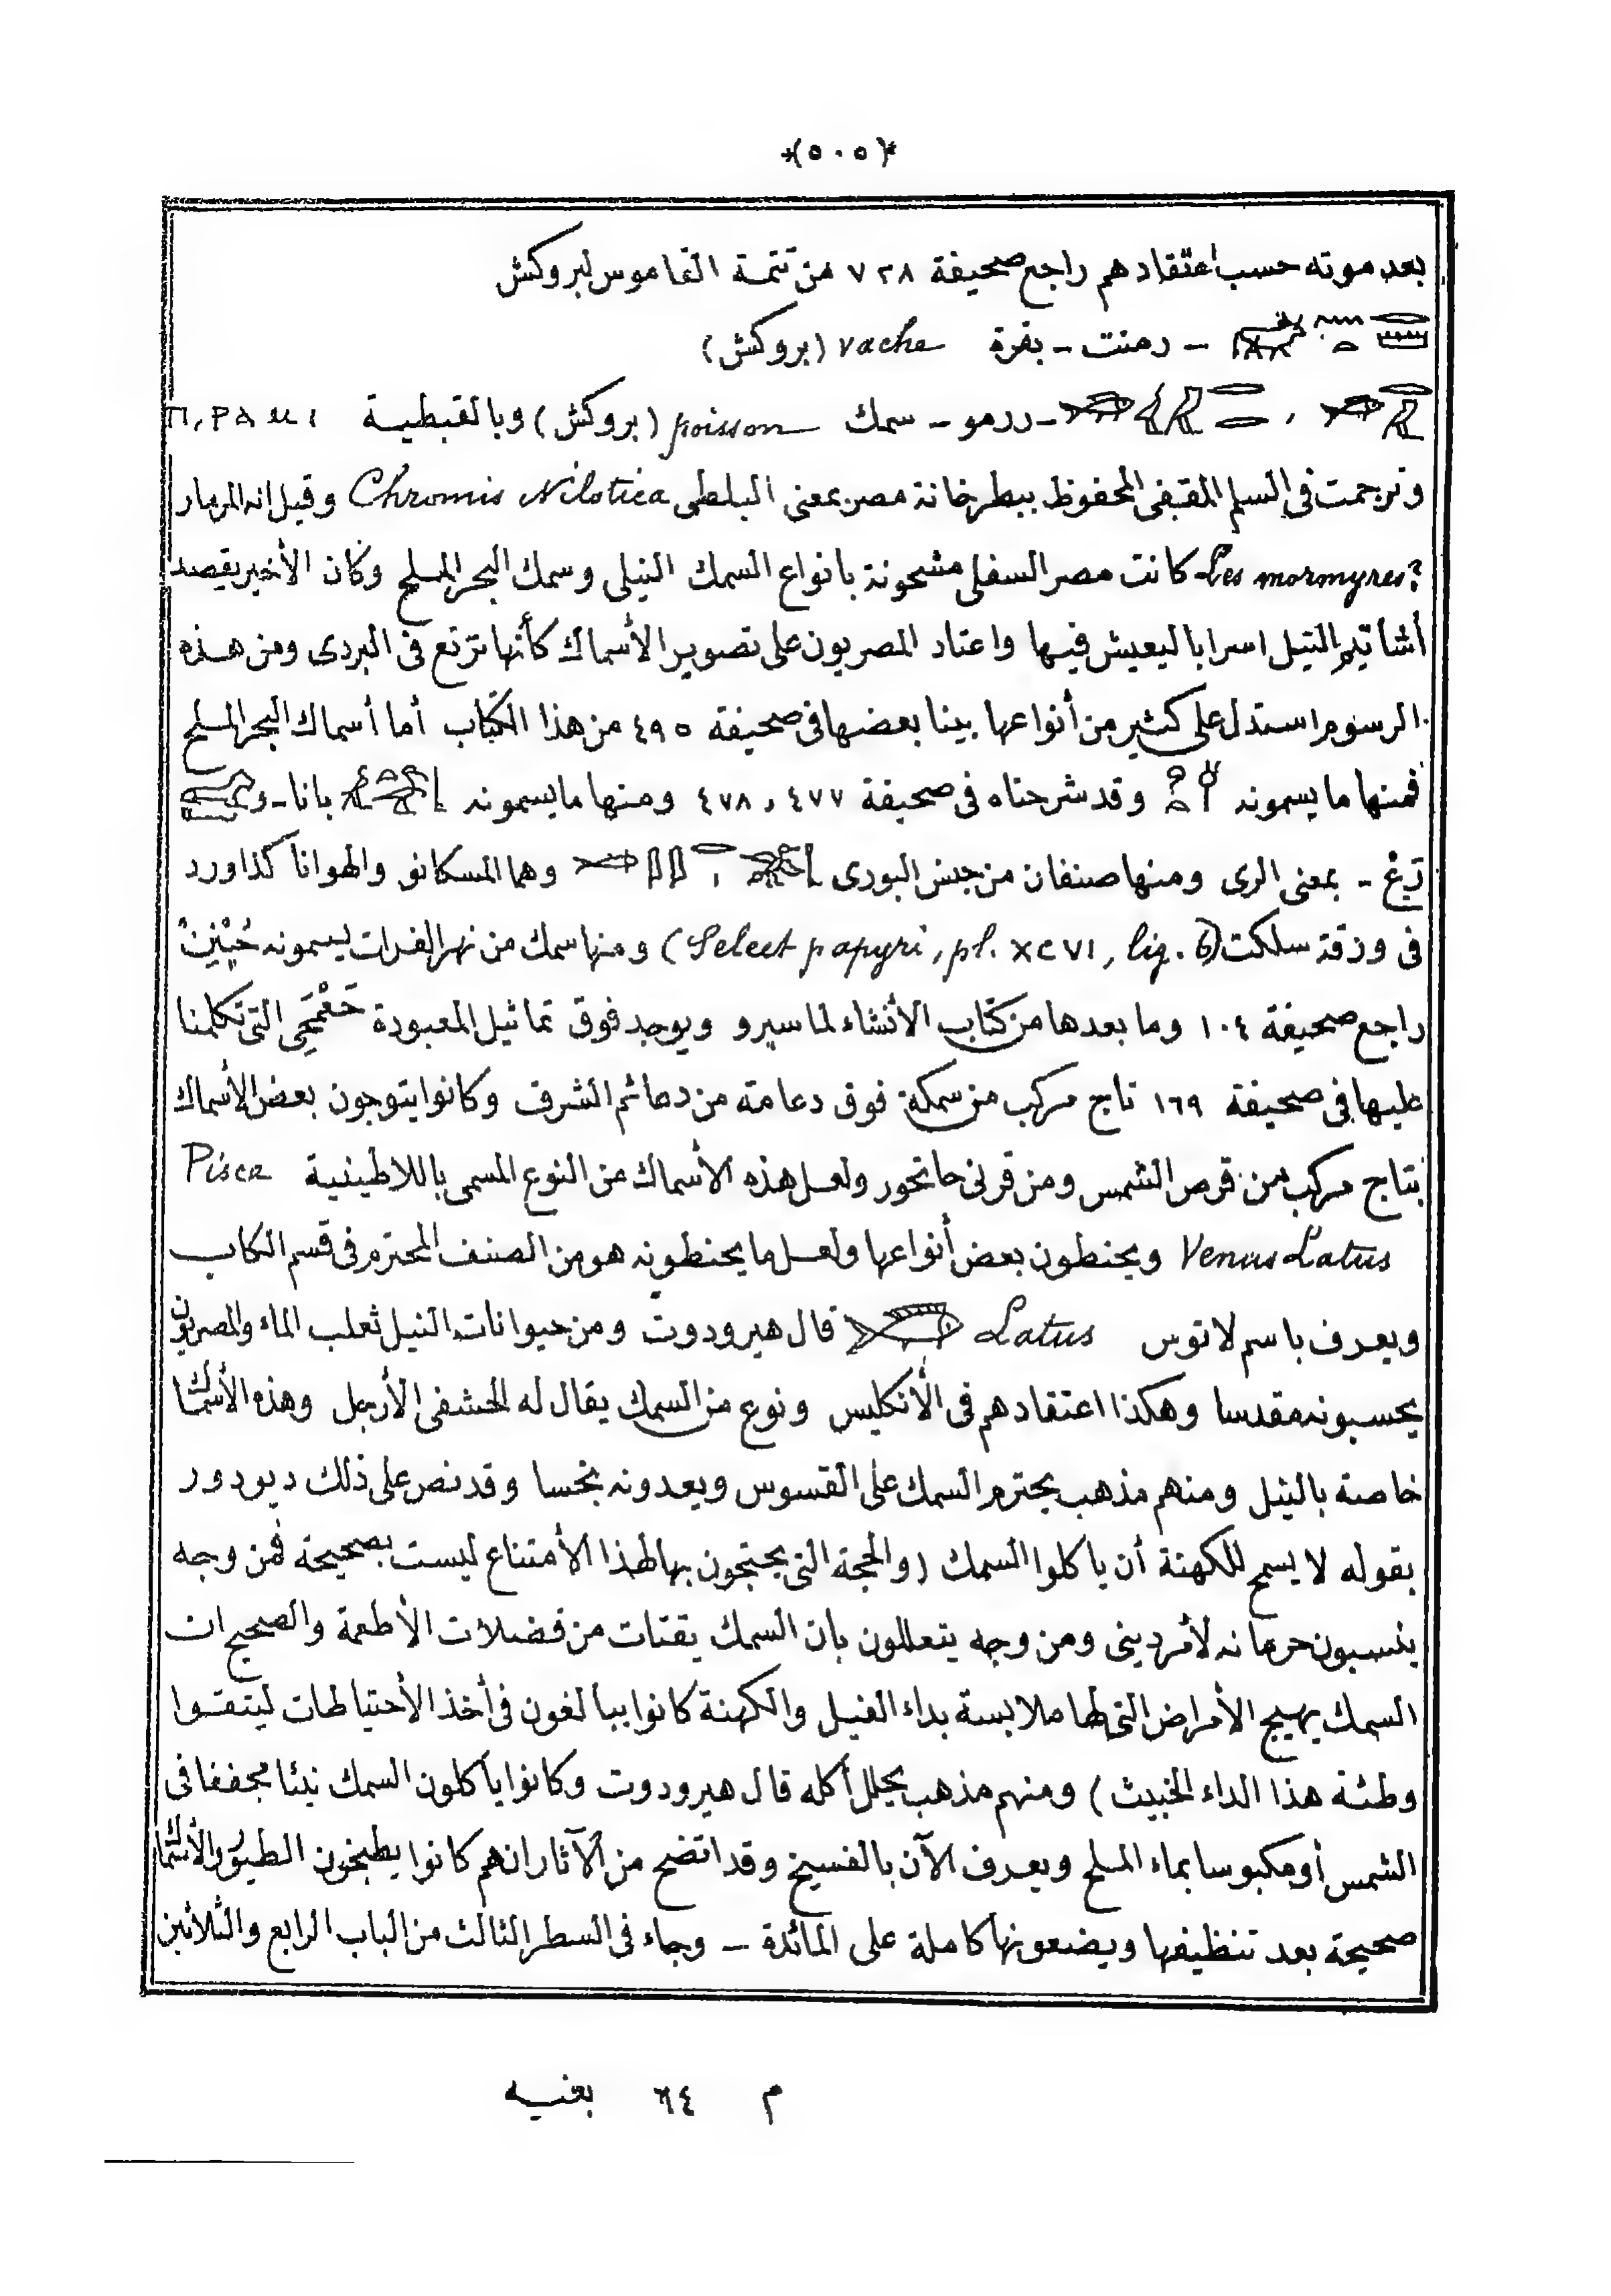 *(٥٠٥)*
بعد موته حسب اعتقادهم راجع صحيفة ٧٢٨ من تتمة القاموس لبروكش
– رمنت – بقرة vache (بروكش)
، – ررمو – سمك poisson (بروكش) وبالقبطية
وترجمت في السلم المقفى المحفوظ ببطرخانة مصر بمعنى البلطى Chromis Nilotica وقيل انه المرمار
Les mormyres? كانت مصر السفلى مشحونة بانواع السمك النيلى وسمك البحر الملح وكان الأخير يقصد
أشأتيم النيل اسرابا ليعيش فيها واعتاد المصريون على تصوير الأسماك كأنها ترتع في البردى ومن هذه
الرسوم استدل على كثير من أنواعها بينا بعضها في صحيفة ٤٩٥ من هذا الكتاب أما أسماك البحر الملح
فمنها ما يسمونه وقد شرحناه في صحيفة ٤٧٧، ٤٧٨ ومنها ما يسمونه بانا – و
رَىْ – بمعنى الرى ومنها صنفان من جنس البورى وهما المسكانو والهوانا كذا ورد
في ورقة سلكت (Select papyri, pl. XCVI, lig. 6) ومنها سمك من نهر الفرات يسمونه
راجع صحيفة ١٠٤ وما بعدها من كتاب الأنشاء لماسپرو ويوجد فوق تماثيل المعبودة حَعْمَحِى التى تكلمنا
عليها في صحيفة ١٦٩ تاج مركب من سمكة فوق دعامة من دعائم الشرف وكانوا يتوجون بعض الأسماك
بتاج مركب من قرص الشمس ومن قرنى حاتحور ولعل هذه الأسماك من النوع المسمى باللاطينية Pisce
Venus Latus ويحنطون بعض أنواعها ولعل ما يحنطونه هو من الصنف المحترم في قسم الكاب
ويعرف باسم لاتوس Latus قال هيرودوت ومن حيوانات النيل ثعلب الماء والمصريون
يحسبونه مقدسا وهكذا اعتقادهم في الأنكليس ونوع من السمك يقال له الحشفى الأرجل وهذه الأسماك
خاصة بالنيل ومنهم مذهب يحترم السمك على القسوس ويعدونه نجسا وقد نص على ذلك ديودور
بقوله لا يسمح للكهنة أن ياكلوا السمك (والحجة التى يحتجون بها لهذا الأمتناع ليست بصحيحة فمن وجه
ينسبون حرمانه لأمر دينى ومن وجه يتعللون بان السمك يقتات من فضلات الأطعمة والصحيح ان
السمك يهيج الأمراض التى لها ملابسة بداء الفيل والكهنة كانوا يبالغون في أخذ الأحتياطات ليتقوا
وطئة هذا الداء الخبيث) ومنهم مذهب يحلل أكله قال هيرودوت وكانوا يأكلون السمك نيئا مجففا في
الشمس أو مكبوسا بماء الملح ويعرف الآن بالفسيخ وقد اتضح من الآثار انهم كانوا يطبخون الطيور والأسماك
صحيحة بعد تنظيفها ويضعونها كاملة على المائدة – وجاء في السطر الثالث من الباب الرابع والثلاثين
م ٦٤ بغيه